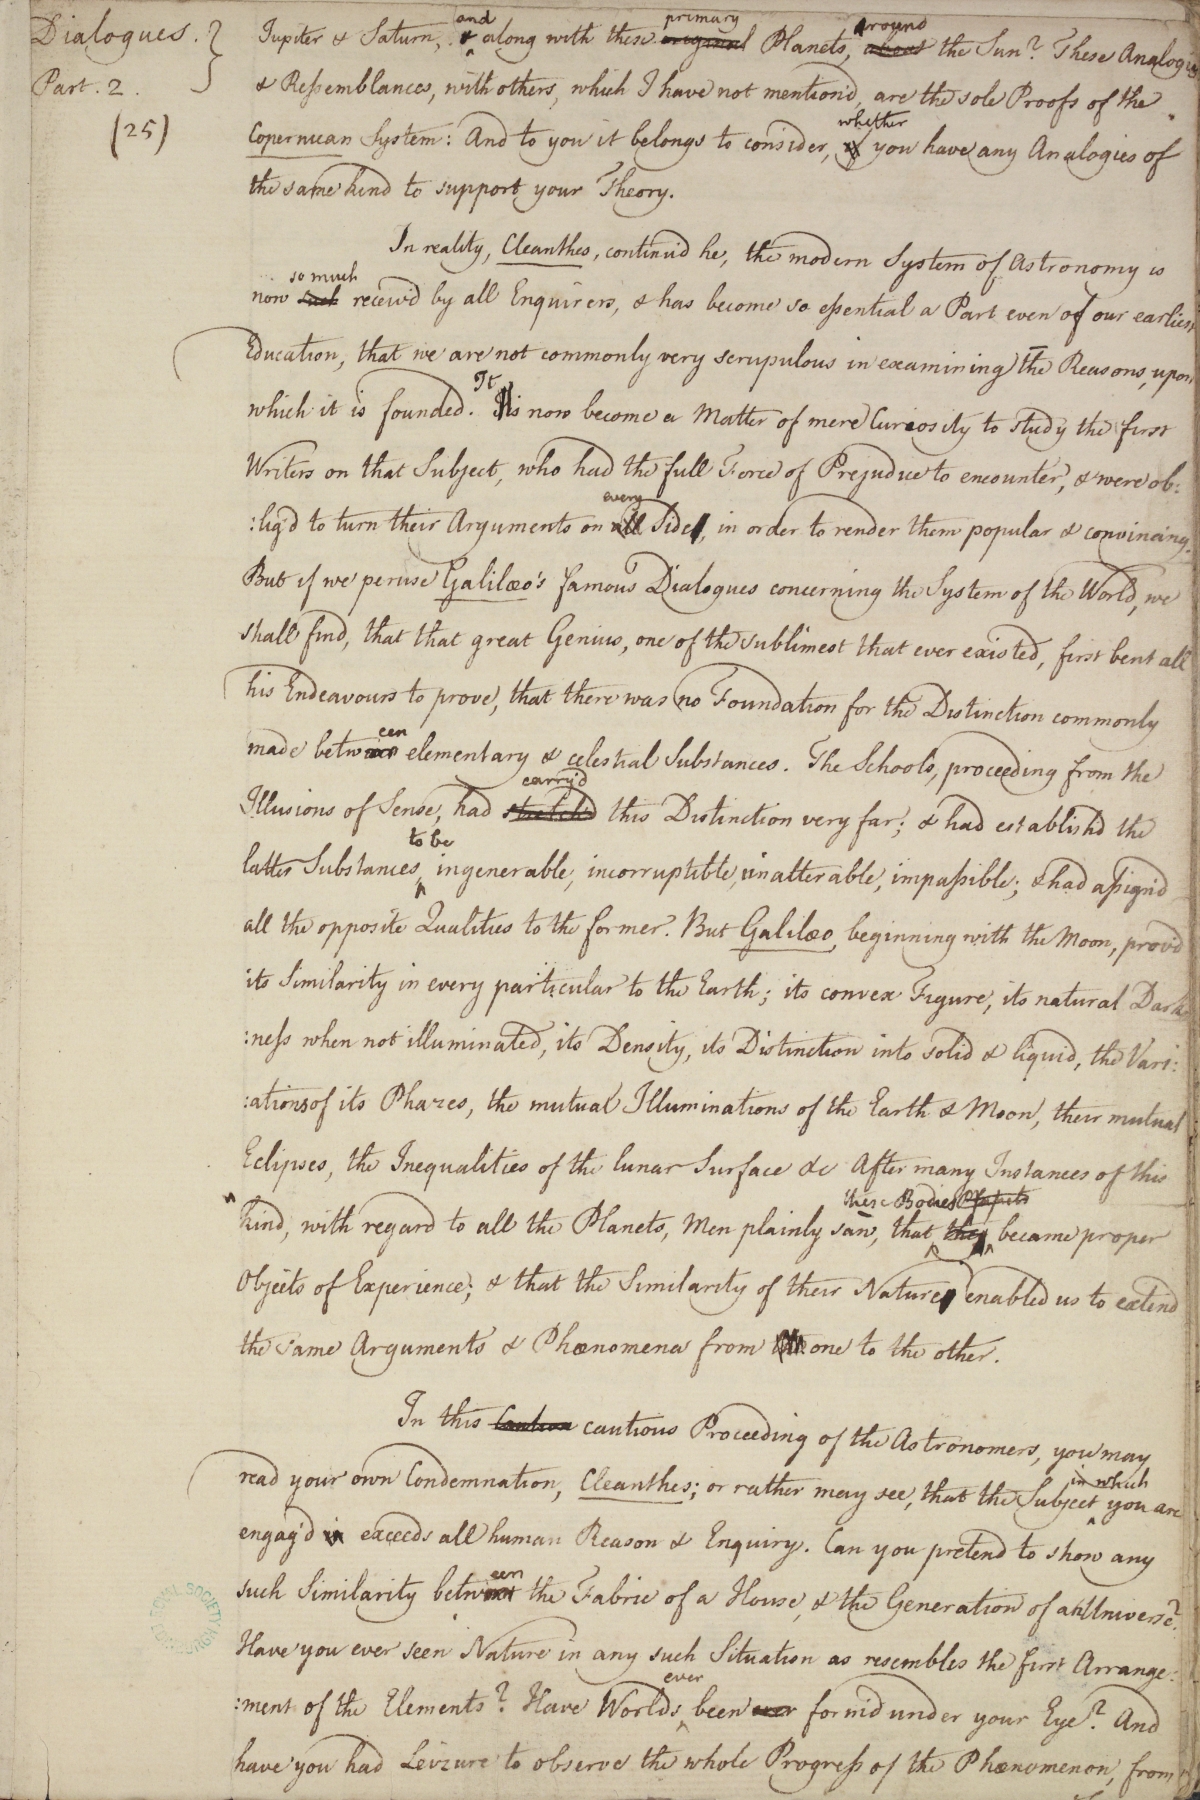 Dialogues.
Part. 2.
(25)
Jupiter & Saturn, & and along with these original primary Planets, about around the Sun? These Analogies
& Ressemblances, with others, which I have not mention'd, are the sole Proofs of the
Copernican System: And to you it belongs to consider, if whether you have any Analogies of
the same kind to support your Theory.
In reality, Cleanthes, continu'd he, the modern System of Astronomy is
now so much receiv'd by all Enquirers, & has become so essential a Part even of our earliest
Education, that we are not commonly very scrupulous in examining the Reasons, upon
which it is founded. It is now become a Matter of mere Curiosity to study the first
Writers on that Subject, who had the full Force of Prejudice to encounter, & were ob:
:lig'd to turn their Arguments on all every Side, in order to render them popular & convincing.
But if we peruse Galilæo's famous Dialogues concerning the System of the World, we
shall find, that that great Genius, one of the sublimest that ever existed, first bent all
his Endeavours to prove, that there was no Foundation for the Distinction commonly
made between elementary & celestial Substances. The Schools, proceeding from the
Illusions of Sense, had stretch'd carry'd this Distinction very far; & had establish'd the
latter Substances to be ingenerable, incorruptible, unalterable, impassible; & had assign'd
all the opposite Qualities to the former. But Galilæo, beginning with the Moon, prov'd
its Similarity in every particular to the Earth; its convex Figure, its natural Dark
:ness when not illuminated, its Density, its Distinction into solid & liquid, the Vari:
:ations of its Phazes, the mutual Illuminations of the Earth & Moon, their mutual
Eclipses, the Inequalities of the lunar Surface &c After many Instances of this
kind, with regard to all the Planets, Men plainly saw, that they these Bodies Planets became proper
Objects of Experience; & that the Similarity of their Nature enabled us to extend
the same Arguments & Phænomena from one to the other.
In this Caution cautious Proceeding of the Astronomers, you may
read your own Condemnation, Cleanthes; or rather may see, that the Subject in which you are
engag'd in exceeds all human Reason & Enquiry. Can you pretend to show any
such Similarity between the Fabric of a House, & the Generation of a Universe?
Have you ever seen Nature in any such Situation as resembles the first Arrange:
:ment of the Elements? Have Worlds ever been ever form'd under your Eye? And
have you had Leizure to observe the whole Progress of the Phænomenon, from